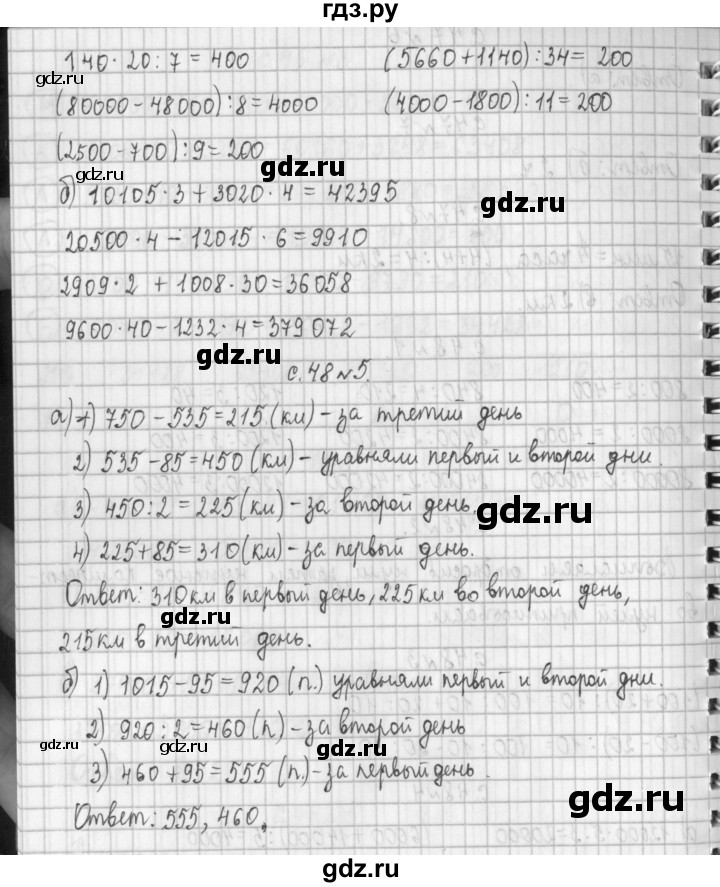 гдз.ру
140·20:7=400
(5660+1140):34=200
(80000-48000):8=4000
(4000-1800):11=200
(2500-700):9=200
gdz.ru
gdz.ru
б) 10105·3+3020·4=42395
gdz.ru
20500·4-12015·6=9910
2909·2+1008·30=36058
9600·40-1232·4=379072
gdz.ru
с.48№5.
а) 1) 750-535=215(км)-за третий день
2) 535-85=450(км)-уравняли первый и второй дни.
3) 450:2=225(км)-за второй день.
gdz.ru
4) 225+85=310(км)-за первый день.
Ответ: 310км в первый день, 225км во второй день,
215км в третий день.
б) 1) 1015-95=920(п.) уравняли первый и второй дни.
2) 920:2=460(п)-за второй день
gdz.ru
gdz.ru
3) 460+95=555(п.)-за первый день.
gdz.ru
Ответ: 555, 460.
gdz.ru